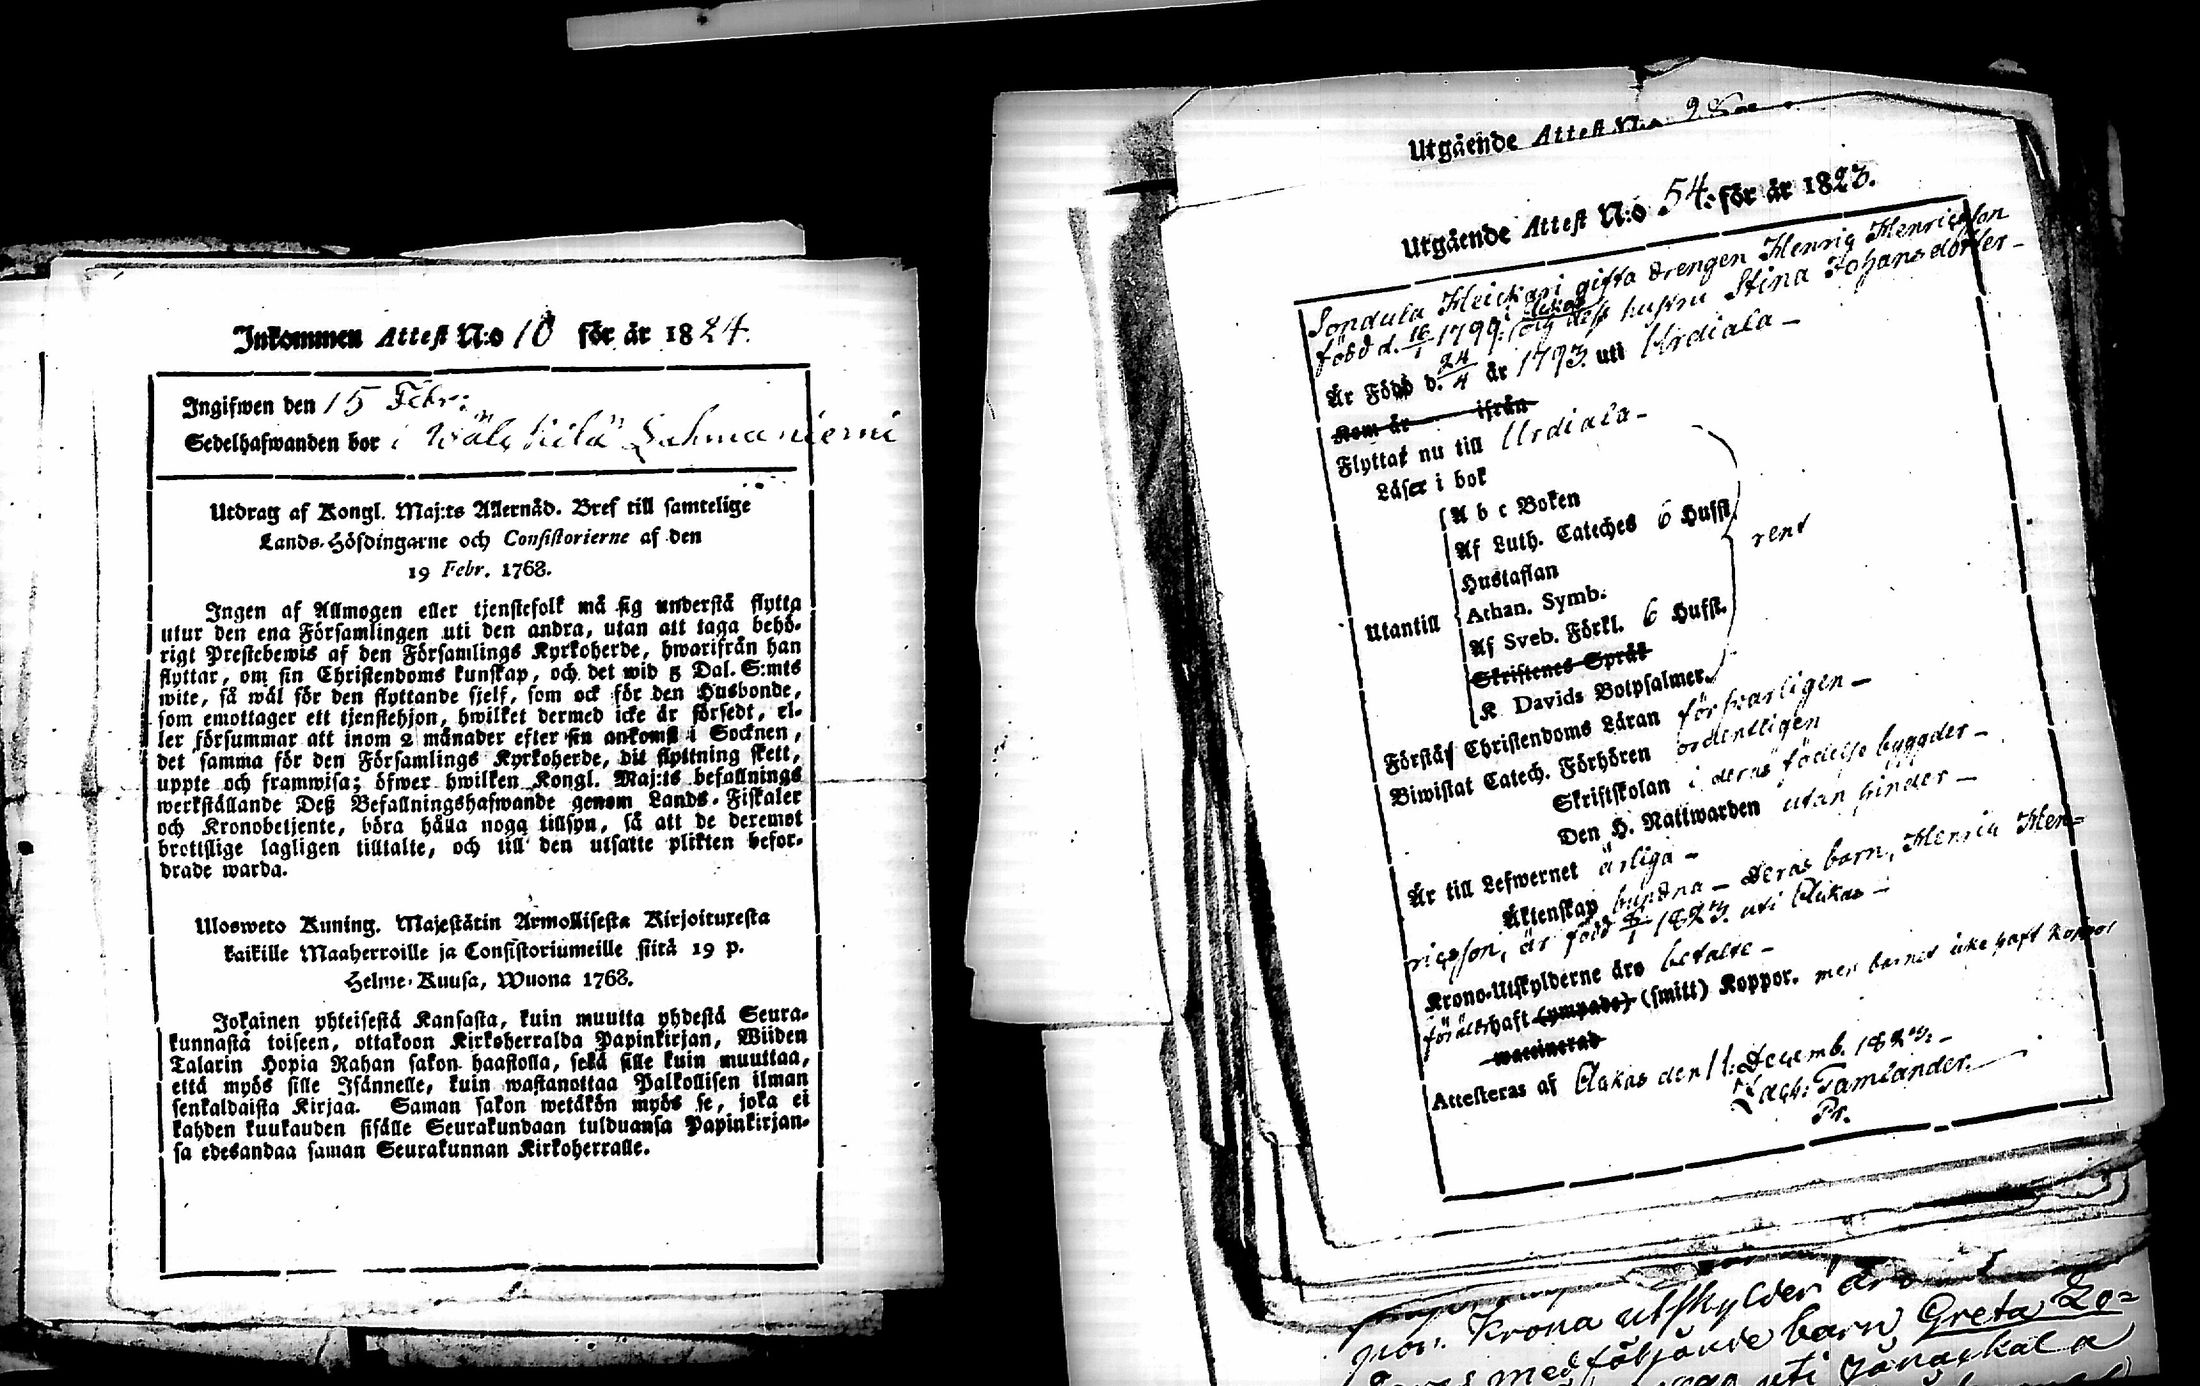 Inkommen Attest N:o 10 för år 1824.
Ingifwen den 15 Febr:
Sedelhafwanden bor i Wälkkilä
Utdrag af Kongl. Maj:ts Allernåd. Bref till samtelige
Lands-Höfdingarne och Consistorierne af den
19 Febr. 1768.
Ingen af Allmogen eller tjenstefolk må sig understå flytta
utur den ena Församlingen uti den andra, utan att taga behö-
rigt Prestebewis af den Församlings Kyrkoherde, hwarifrån han
flyttar, om sin Christendoms kunskap, och det wid 5 Dal. S:mts
wite, så wäl för den flyttande sjelf, som ock för den Husbonde,
som emottager ett tjenstehjon, hwilket dermed icke är försedt, el-
ler försummar att inom 2 månader efter sin ankomst i Socknen,
det samma för den Församlings Kyrkoherde, dit flyttning skett,
uppte och framwisa; öfwer hwilken Kongl. Maj:ts befallnings
werkställande Deß Befallningshafwande genom Lands-Fiskaler
och Kronobetjente, böra hålla noga tillsyn, så att de deremot
brottslige lagligen tilltalte, och till den utsatte plikten befor-
drade warda.
Ulosweto Kuning. Majestätin Armollisesta Kirjoituxesta
kaikille Maaherroille ja Consistoriumeille siitä 19 p.
Helme-Kuusa, Wuona 1768.
Jokainen yhteisestä Kansasta, kuin muutta yhdestä Seura-
kunnasta toiseen, ottakoon Kirkoherralda Papinkirjan, Wiiden
Talarin Hopia Rahan sakon haastolla, sekä sille kuin muuttaa,
että myös sille Isännelle, kuin wastanottaa Palkollisen ilman
senkaldaista Kirjaa. Saman sakon wetäkön myös se, joka ei
kahden kuukauden sisälle Seurakundaan tulduansa Papinkirjan-
sa edesandaa saman Seurakunnan Kirkoherralle.
Utgående Attest N:o
Utgående Attest N:o 54: för år 1823.
Sondula Heickari gifta drengen Henric Henricsson
född d. 16/1 1799 i Akas och dess hustru Stina Johansdotter-
Är Född d. 24/4 år 1793. uti Urdiala-
Kom år ifrån
Flyttat nu till Urdiala-
Läser i bok
Utantill
A b c Boken
Af Luth. Cateches 6 Hufst.
Hustaflan
Athan. Symb.
Af Sveb. Förkl. 6 Hufst.
Skriftenes Språk
K Davids Botpsalmer.
rent
Förstår Christendoms Läran försvarligen-
Biwistat Catech. Förhören ordentligen
Skriftskolan i deras födelse bygder-
Den H. Nattwarden utan hinder-
Är till Lefwernet ärliga-
Äktenskap bundna- Deras barn, Henric Hen=
ricsson, är född 1823. uti Akas-
Krono-Utskylderne äro betalte-
föräldr. haft (ympade) (smitt) Koppor. men barnet icke haft koppor
waccinerad
Attesteras af Akas den 11: Decemb. 1823.
Zach: Tamlander.
Pr.
Krona utskylder äro
med följande barn Greta Lo=
uti Janackala